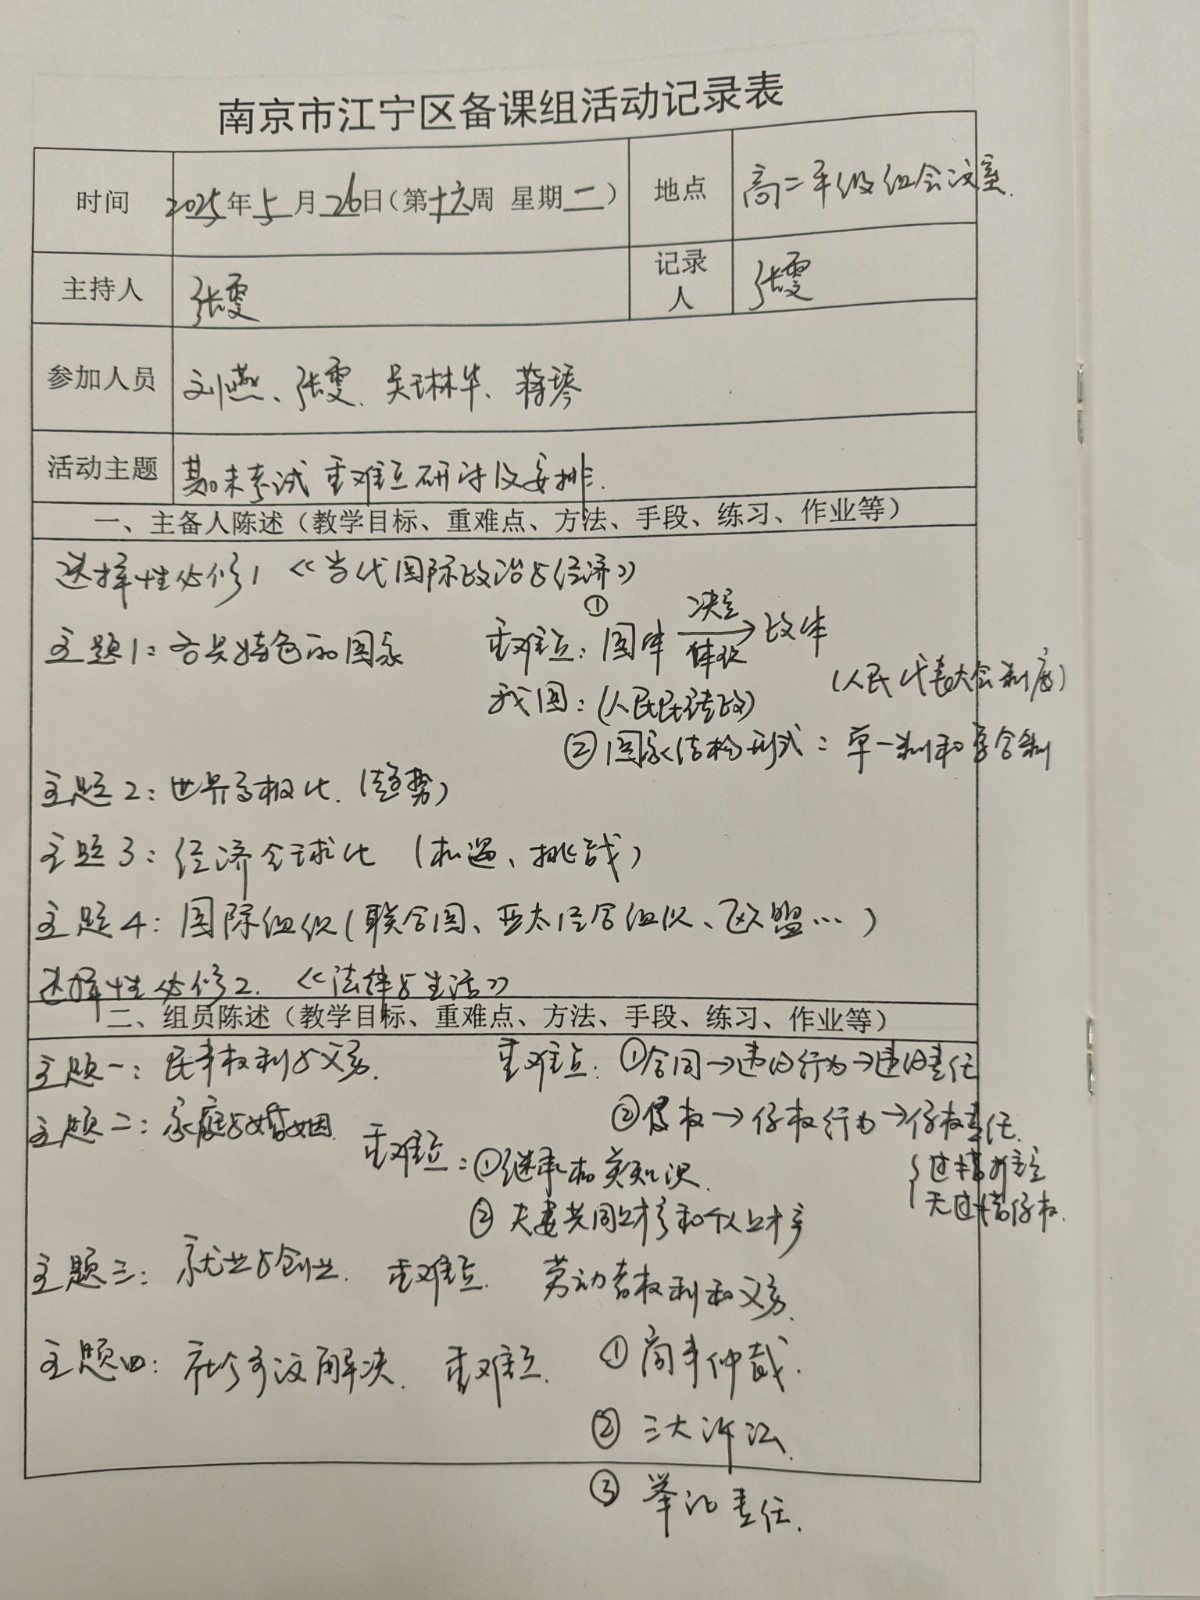 南京市江宁区备课组活动记录表
时间 2025年5月26日(第十六周 星期二) 地点 高二年级组会议室.
主持人 张雯 记录人 张雯
参加人员 刘燕、张雯、吴琳华、蒋琴
活动主题 期末考试重难点研讨及安排.
一、主备人陈述（教学目标、重难点、方法、手段、练习、作业等）
选择性必修1 《当代国际政治与经济》
主题1：各具特色的国家 重难点：①国体 决定 体现 政体
我国：(人民民主专政) (人民代表大会制度)
②国家结构形式：单一制和复合制
主题2：世界多极化.(趋势)
主题3：经济全球化 (机遇、挑战)
主题4：国际组织(联合国、亚太经合组织、欧盟…)
选择性必修2.《法律与生活》
二、组员陈述（教学目标、重难点、方法、手段、练习、作业等）
主题一：民事权利与义务. 重难点：①合同→违约行为→违约责任
②侵权→侵权行为→侵权责任.
主题二：家庭与婚姻. 重难点：①继承相关知识.
{过错推定
无过错侵权.
②夫妻共同财产和个人财产
主题三：就业与创业. 重难点. 劳动者权利和义务.
主题四：社会争议解决. 重难点. ①商事仲裁.
②三大诉讼.
③举证责任.